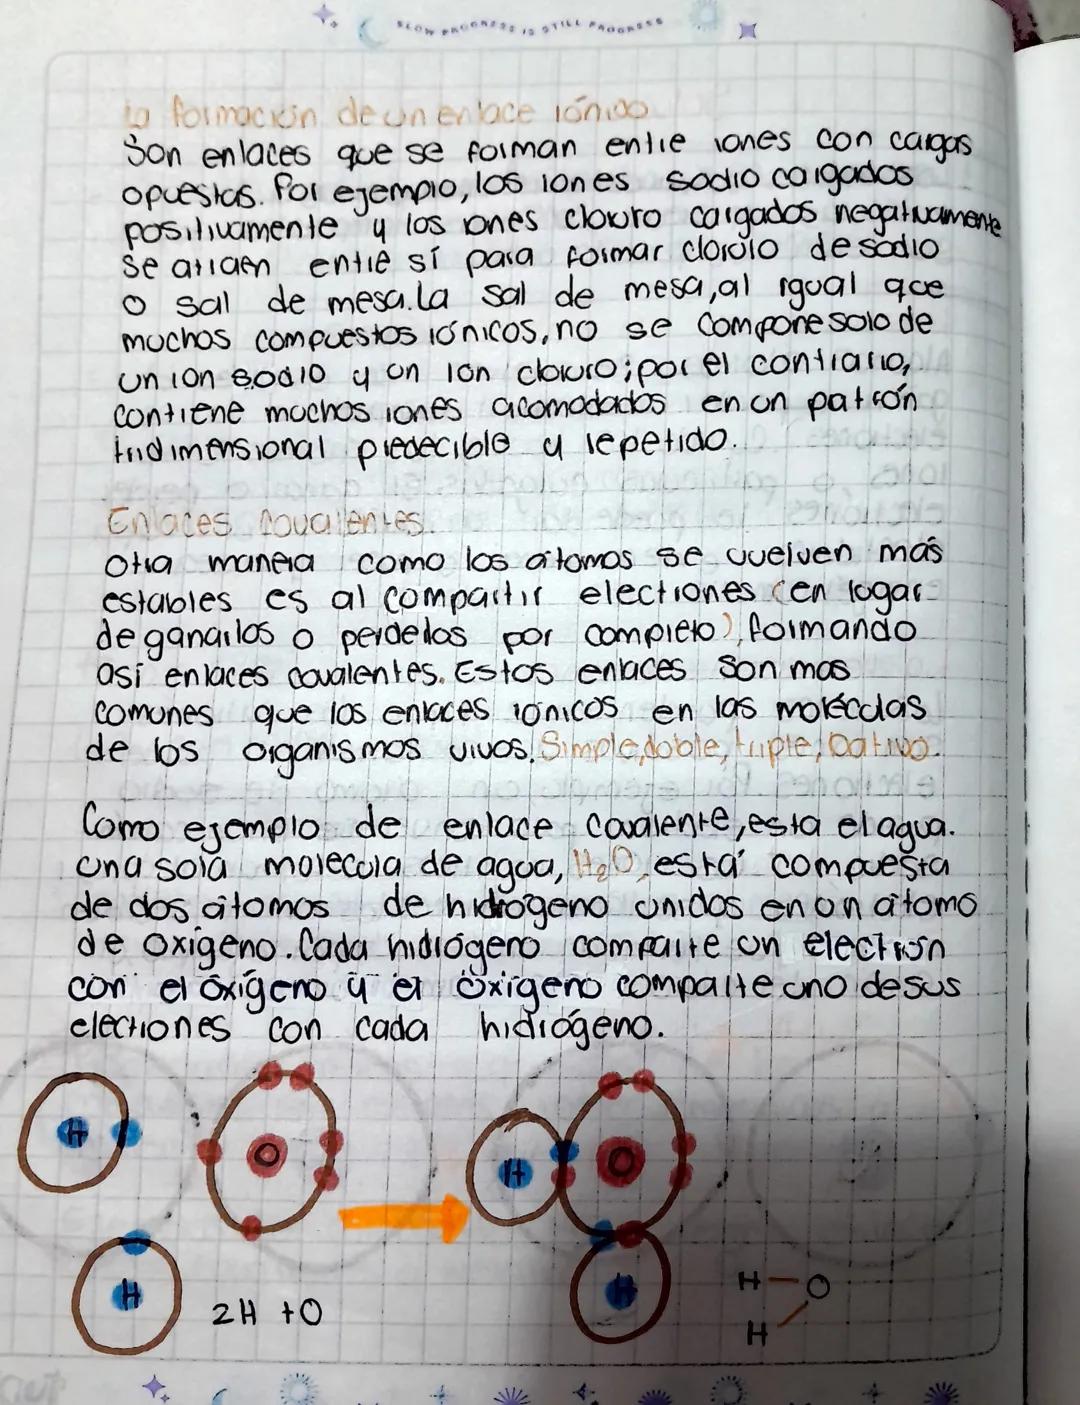 SLOW PROGRESS IS STILL PROGRESS
La formación de un enlace iónico
Son enlaces que se forman entre iones con cargas
opuestas. Por ejemplo, los iones sodio cargados
positivamente y los iones cloruro cargados negativamente
se atraen entre sí para formar cloruro de sodio
o sal de mesa. La sal de mesa, al igual que
muchos compuestos iónicos, no se compone solo de
un ion sodio y un ion cloruro; por el contrario,
contiene muchos iones acomodados en un patrón
tridimensional predecible y repetido.
Enlaces covalentes.
Otra manera como los átomos se vuelven más
estables es al compartir electrones (en lugar
de ganarlos o perdelos por completo), formando
así enlaces covalentes. Estos enlaces son mas
comunes que los enlaces iónicos en las moléculas
de los organismos vivos. Simple, doble, triple, Dativo.
Como ejemplo de enlace covalente, esta el agua.
Una sola molecula de agua, H₂O, está compuesta
de dos átomos de hidrógeno unidos en un átomo
de oxígeno. Cada hidrógeno comparte un electrón
con el oxígeno y el oxígeno comparte uno de sus
electrones con cada hidrógeno.
H O H O
H 2H + O H
H — O
H